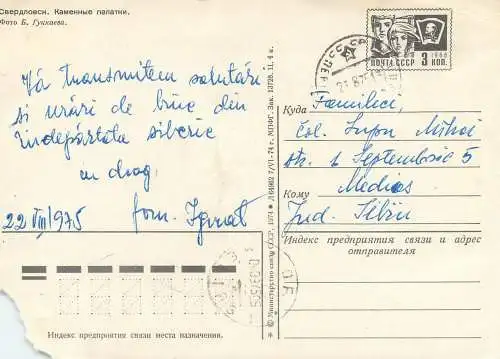 Свердловск. Каменные палатки.
Фото Б. Гункаева.
Vă transmitem salutări
și urări de bine din
îndepărtata siberie
cu drag,
22 VIII 1975 fam. Ignat
Индекс предприятия связи места назначения.
© Министерство связи СССР, 1974 ★ Л 64962 7/VI-74 г. МПФГ. Зак. 13728. Ц. 4 к.
ПОЧТА СССР 3 КОП.
1966
Куда Familiei,
Col. Lupu Mihai
str. 1 Septembrie 5
Кому Medias
Jud. Sibiu
Индекс предприятия связи и адрес
отправителя